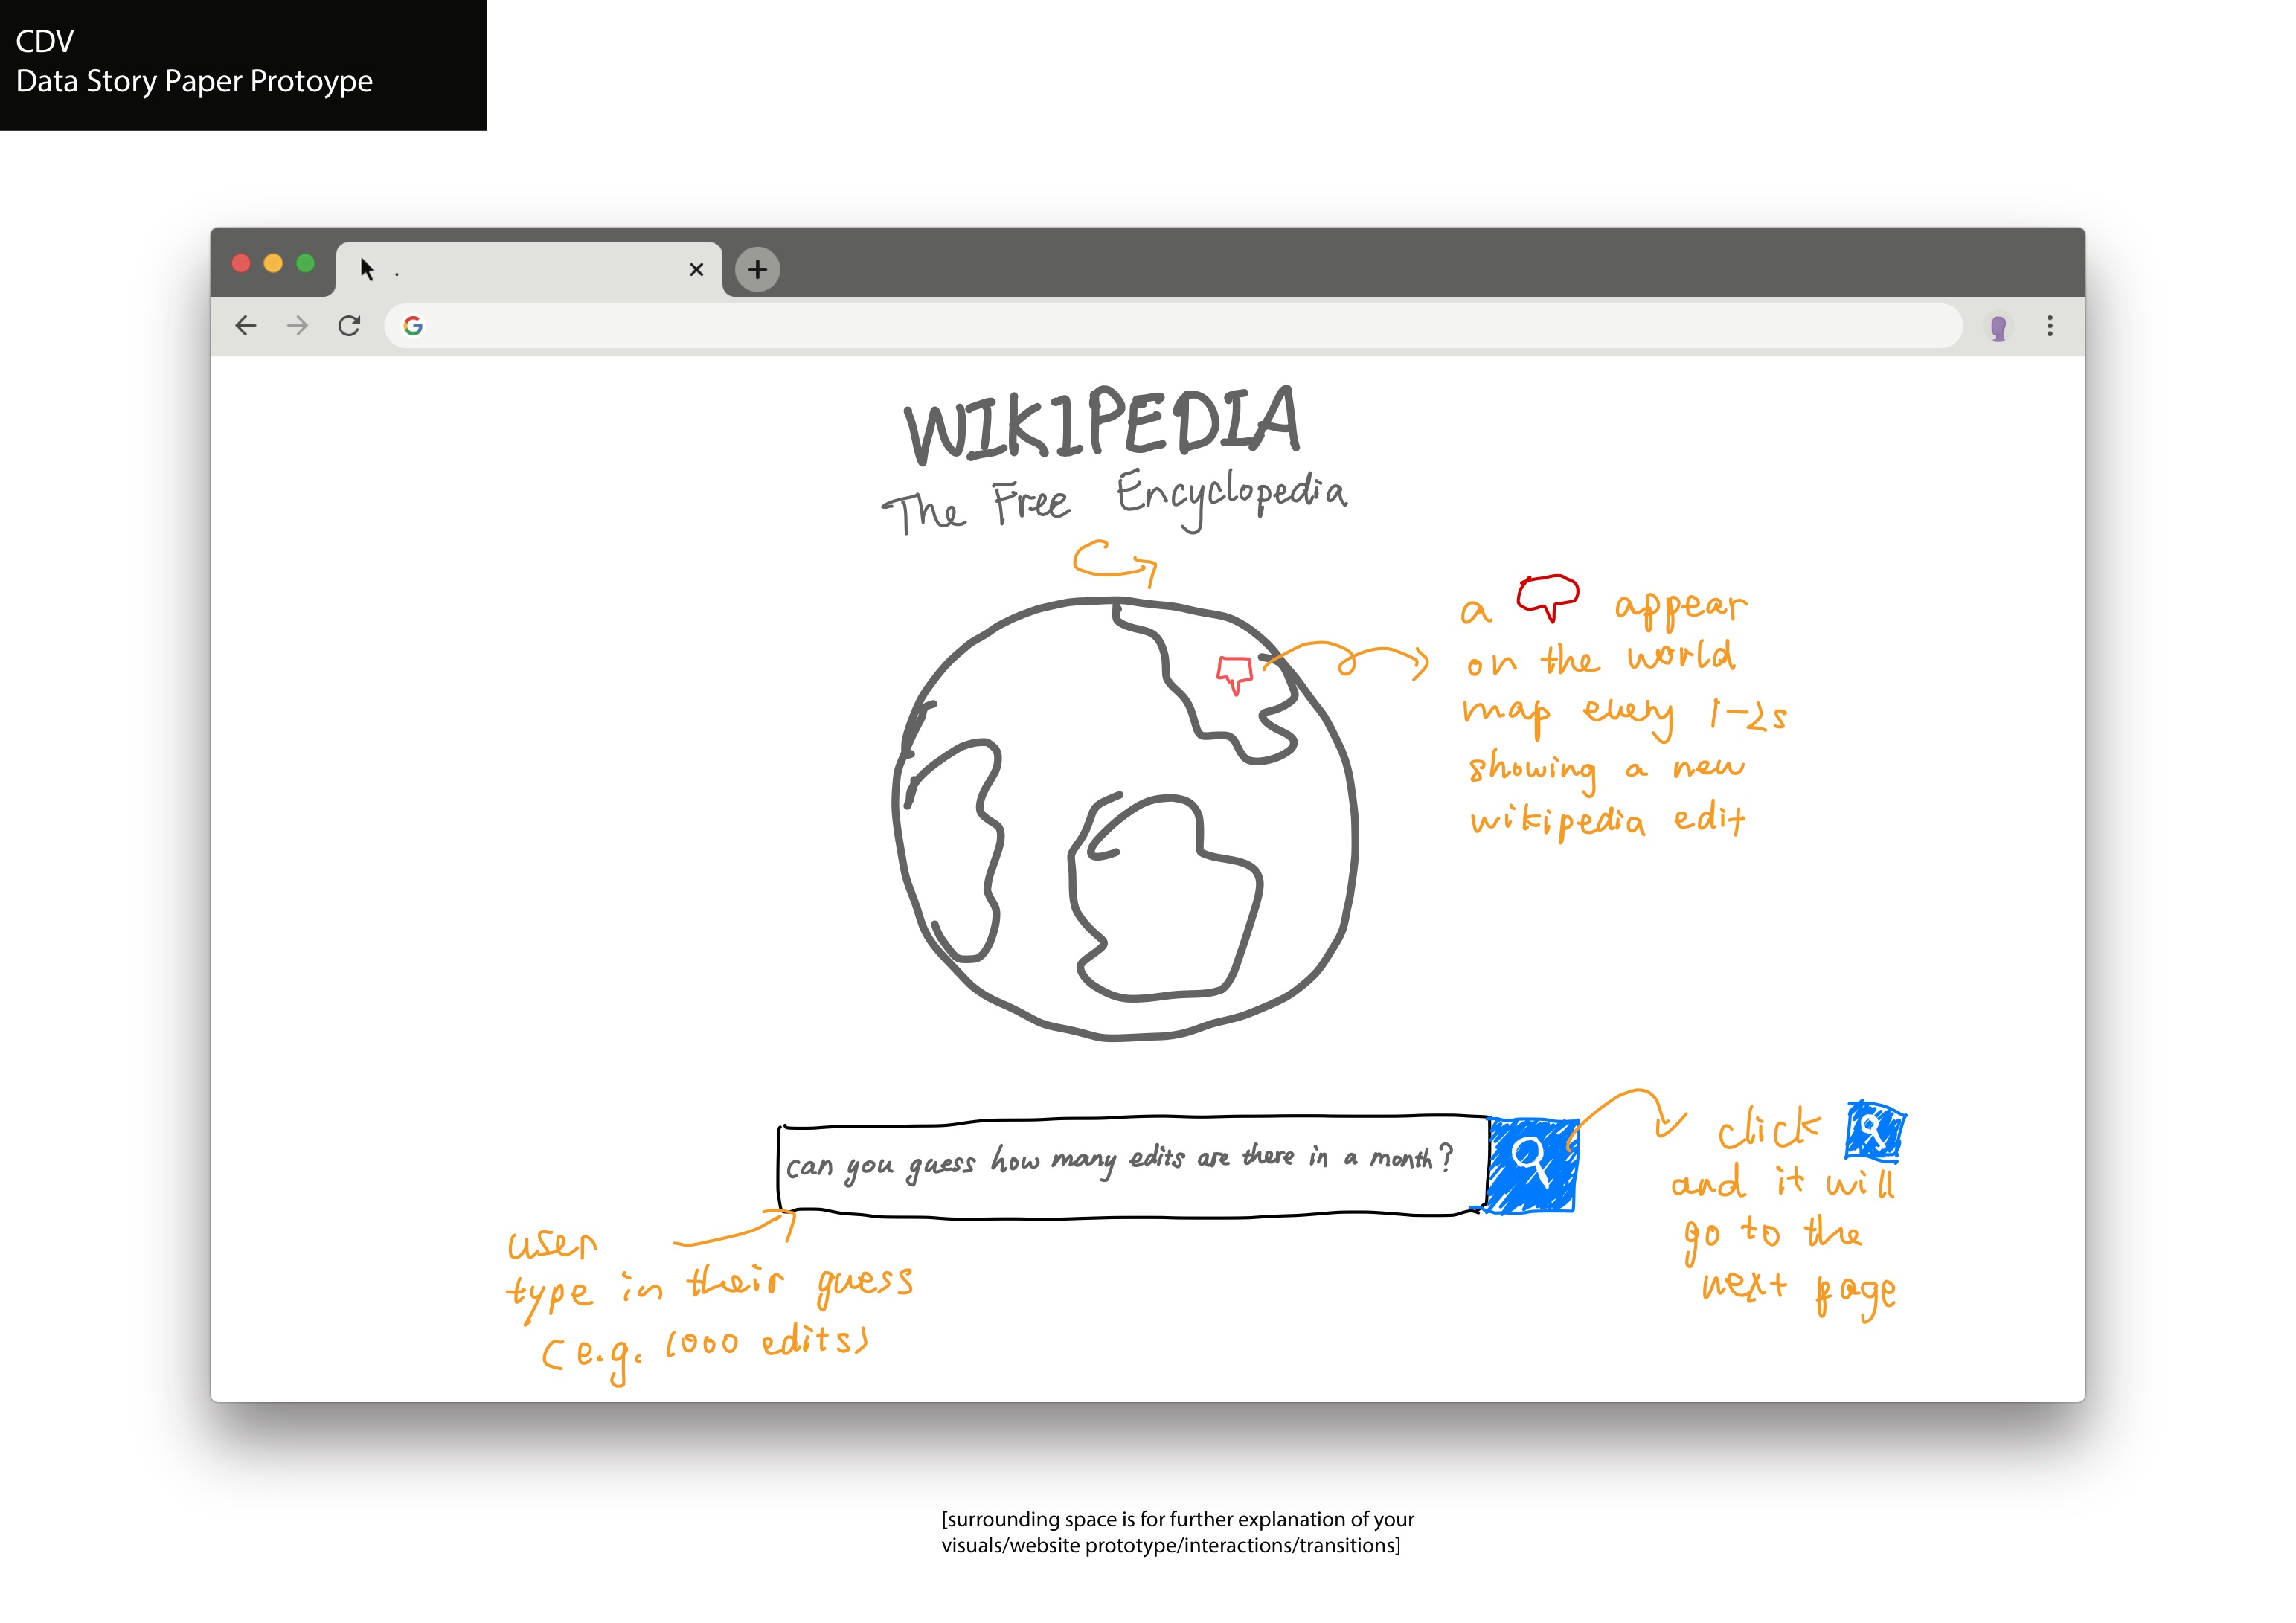 CDV
Data Story Paper Protoype
.
WIKIPEDIA
The Free Encyclopedia
a appear
on the world
map every 1-2s
showing a new
wikipedia edit
can you guess how many edits are there in a month?
click
and it will
go to the
next page
user
type in their guess
(e.g. 1000 edits)
[surrounding space is for further explanation of your
visuals/website prototype/interactions/transitions]